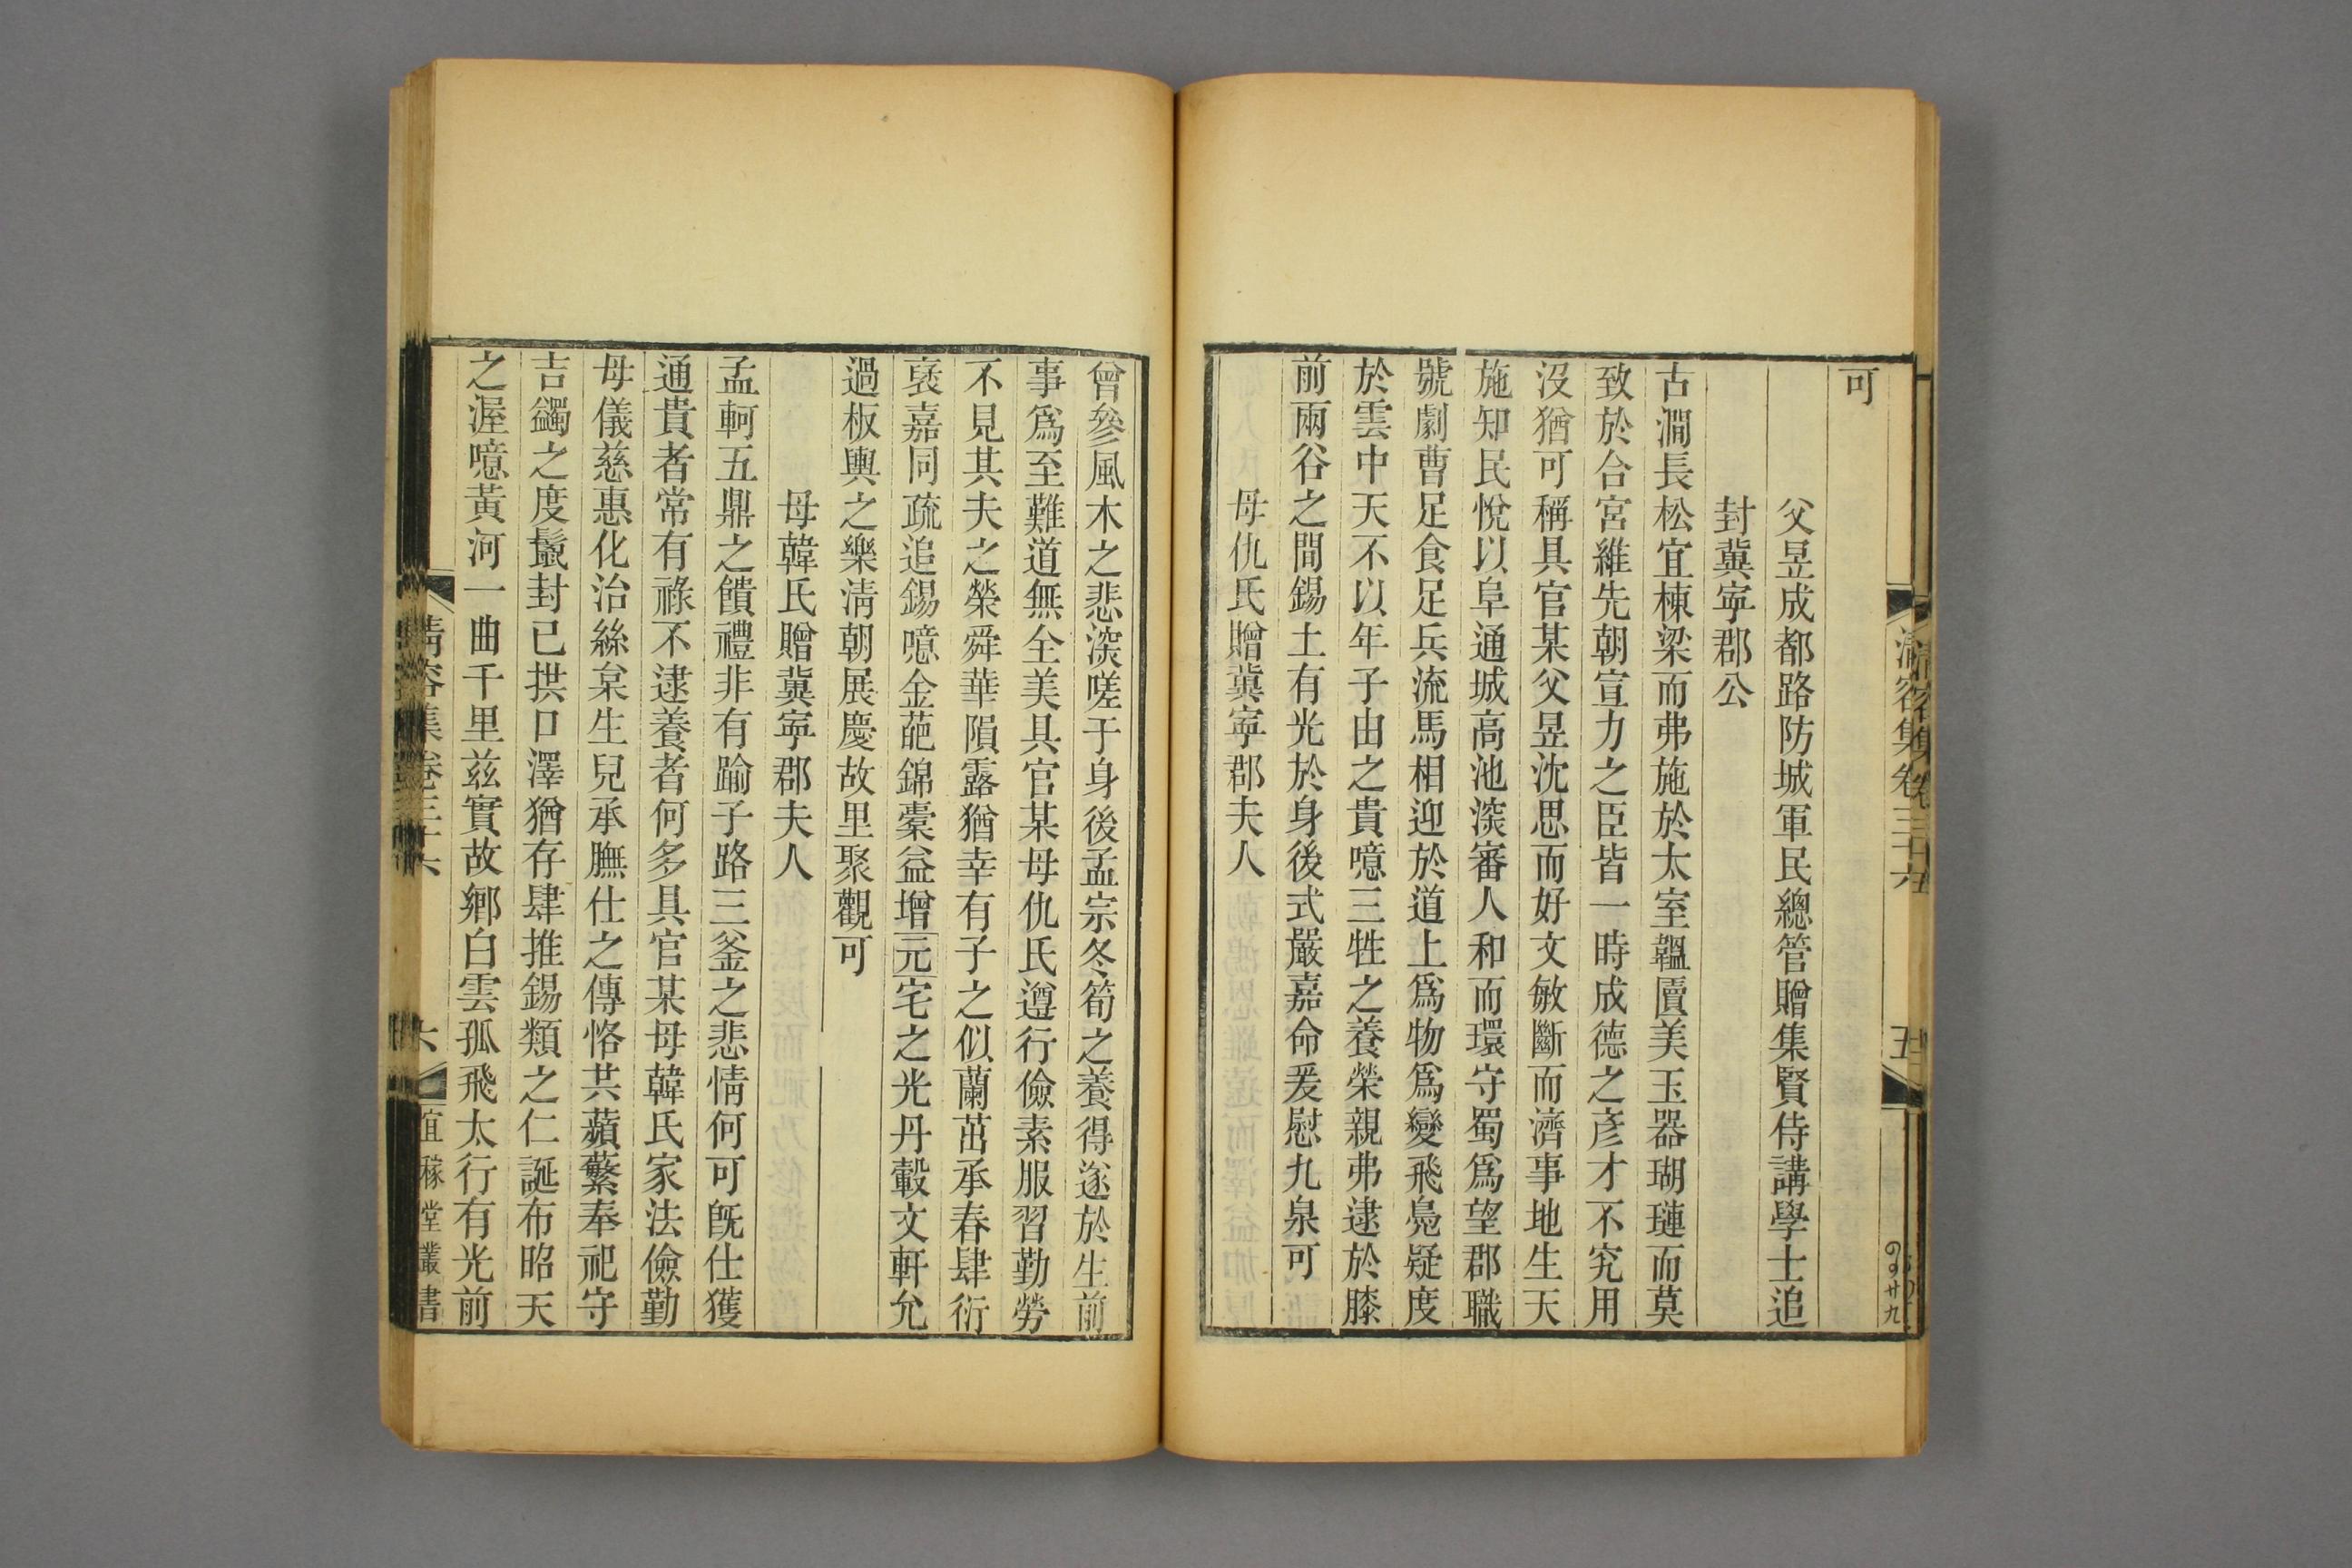 可
父昱成都路防城軍民總管贈集賢侍講學士追
封冀寧郡公
古澗長松宜棟梁而弗施於太室韞匵美玉器瑚璉而莫
致於合宮維先朝宣力之臣皆一時成德之彥才不究用
沒猶可稱具官某父昱沈思而好文敏斷而濟事地生天
施知民悅以阜通城高池深審人和而環守蜀爲望郡職
號劇曹足食足兵流馬相迎於道上爲物爲變飛鳧疑度
於雲中天不以年子由之貴噫三牲之養榮親弗逮於膝
前兩谷之間錫土有光於身後式嚴嘉命爰慰九泉可
母仇氏贈冀寧郡夫人
清容集卷三十六
五
曾參風木之悲深嗟于身後孟宗冬筍之養得遂於生前
事爲至難道無全美具官某母仇氏遵行儉素服習勤勞
不見其夫之榮舜華隕露猶幸有子之似蘭茁承春肆衍
襃嘉同疏追錫噫金葩錦橐益增元宅之光丹轂文軒允
過板輿之樂淸朝展慶故里聚觀可
母韓氏贈冀寧郡夫人
孟軻五鼎之饋禮非有踰子路三釜之悲情何可旣仕獲
通貴者常有祿不逮養者何多具官某母韓氏家法儉勤
母儀慈惠化治絲枲生兒承膴仕之傳恪共蘋蘩奉祀守
吉蠲之度鬣封已拱口澤猶存肆推錫類之仁誕布昭天
之渥噫黃河一曲千里兹實故鄉白雲孤飛太行有光前
清容集卷三十六
六
宜稼堂叢書